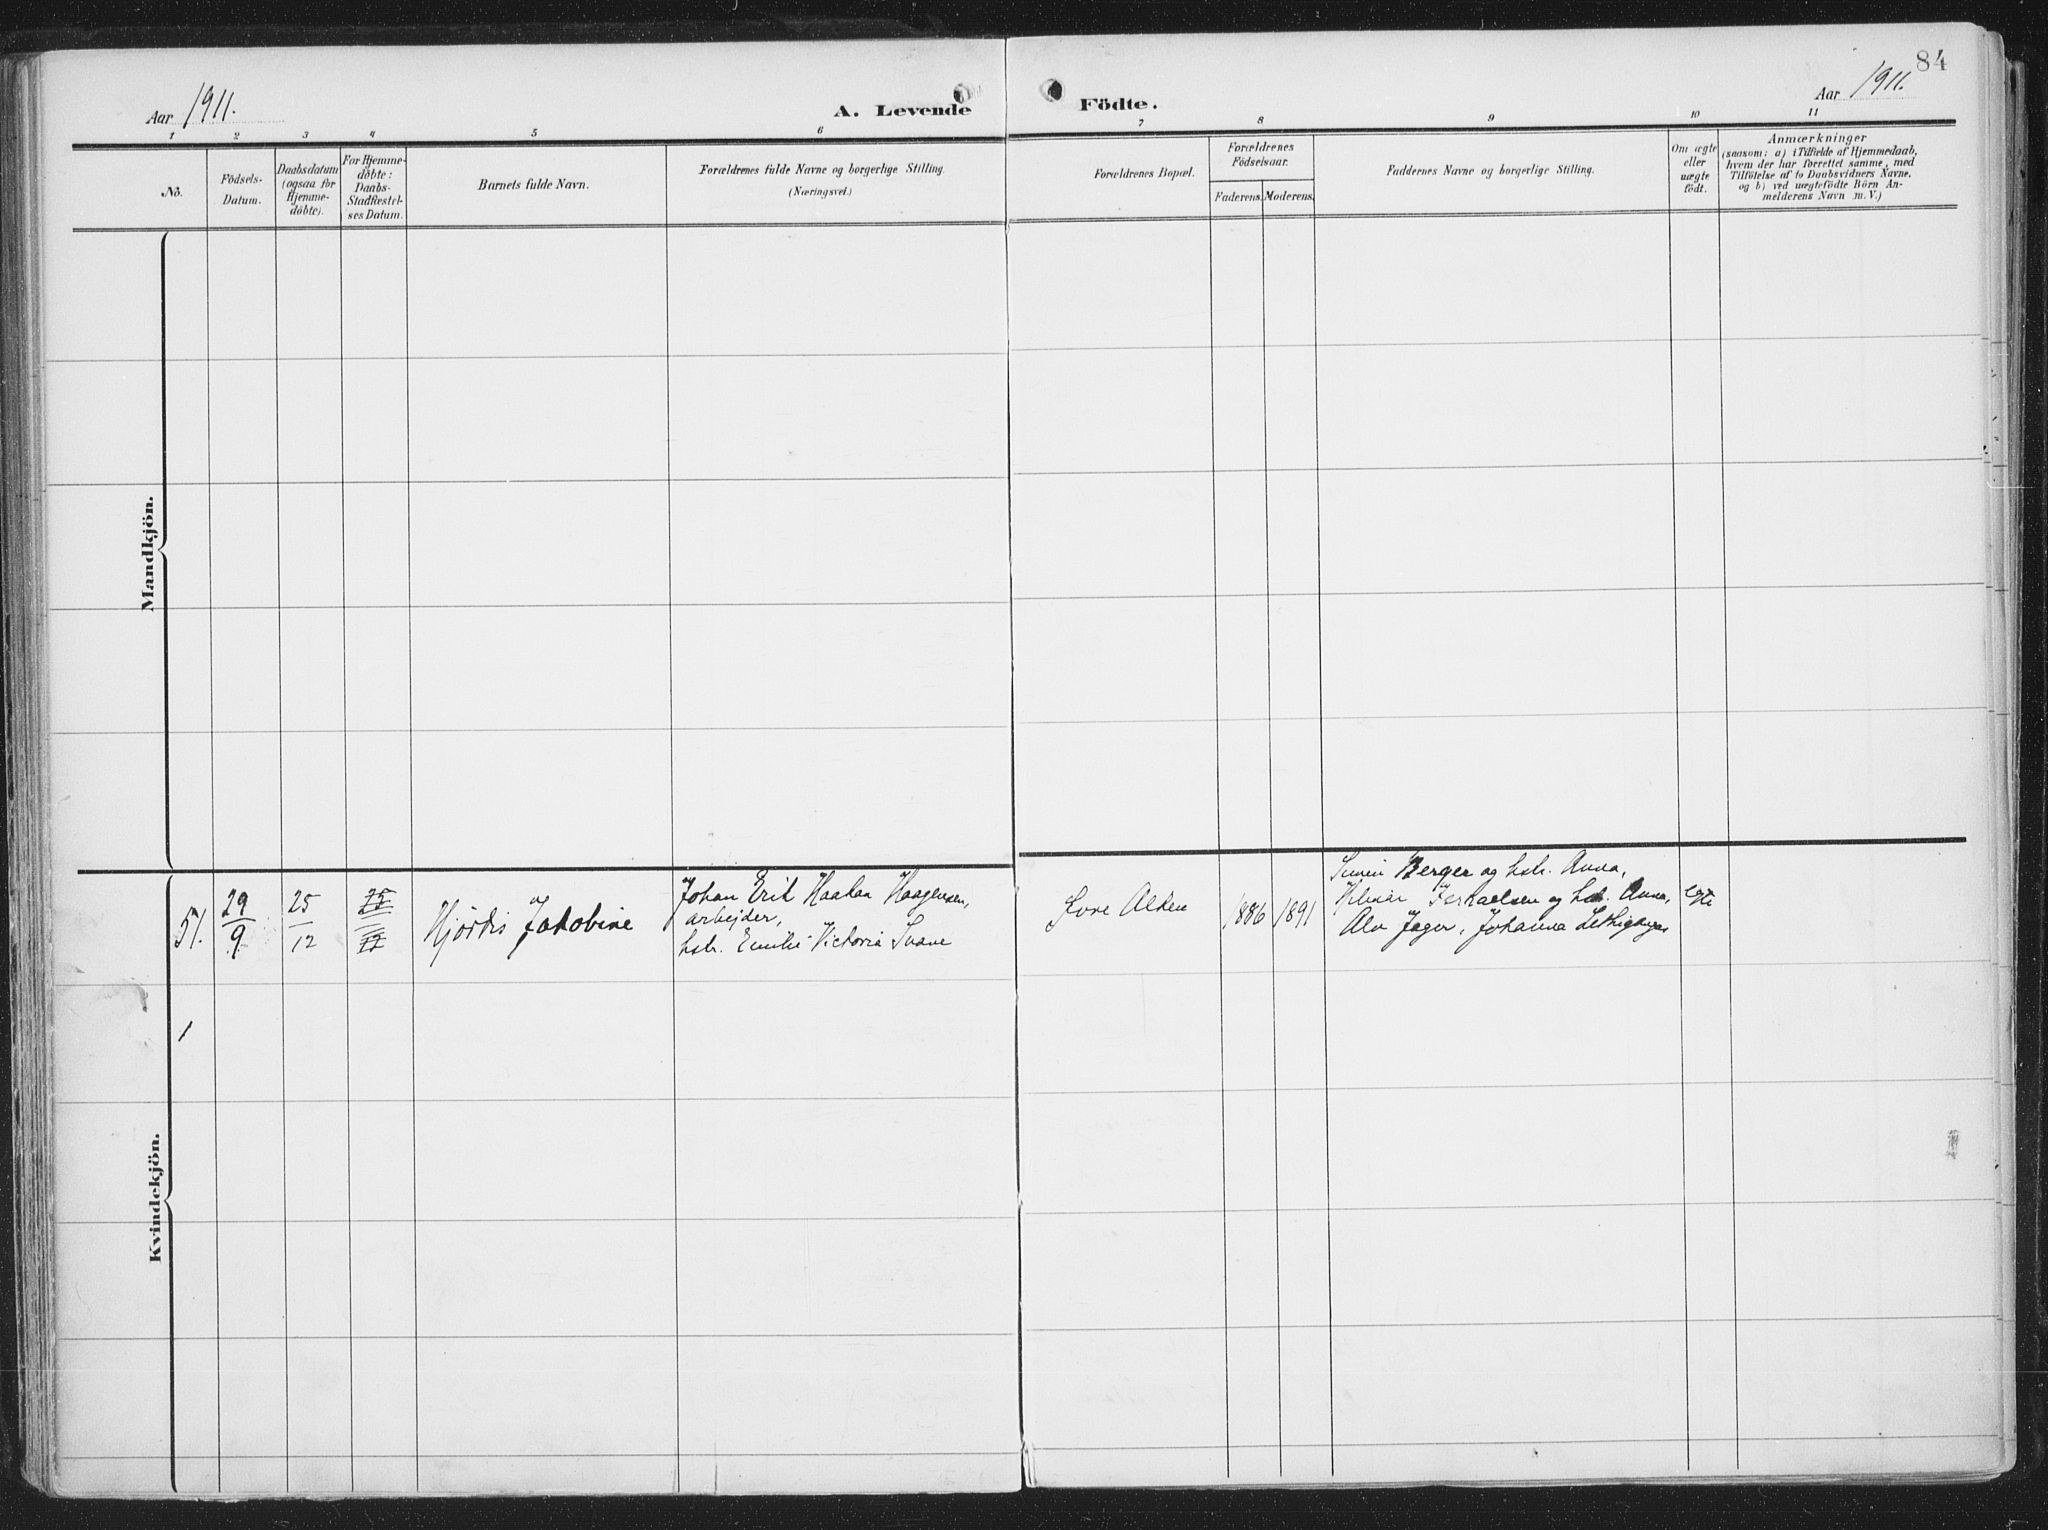 84
Aar 1911.
A. Levende Födte.
Aar 1911.
1 2 3 4 5 6 7 8 9 10 11
No.
Födsels-
Datum.
Daabsdatum
(ogsaa for
Hjemme-
døbte).
For Hjemme-
døbte:
Daabs-
Stadfæstel-
ses Datum.
Barnets fulde Navn.
Forældrenes fulde Navne og borgerlige Stilling.
(Næringsvei.)
Forældrenes Bopæl.
Forældrenes
Födselsaar.
Faderens. Moderens.
Faddernes Navne og borgerlige Stilling.
Om ægte
eller
uægte
födt.
Anmærkninger
(saasom: a) i Tilfælde af Hjemmedaab,
hvem der har forrettet samme, med
Tilföielse af to Daabsvidners Navne,
og b) ved uægtefödte Börn An-
melderens Navn m. V.)
Mandkjön.
Kvindekjön.
51.
29
9
25
12
25
12
Hjørdis Jakobine
Johan Erik Haakan Haagensen,
arbejder,
hstr. Emilie Victoria Svane
Alden
1886
1891
Berger og hstr. Anna,
og Anna,
Alv Jæger, Johanna
egte
1